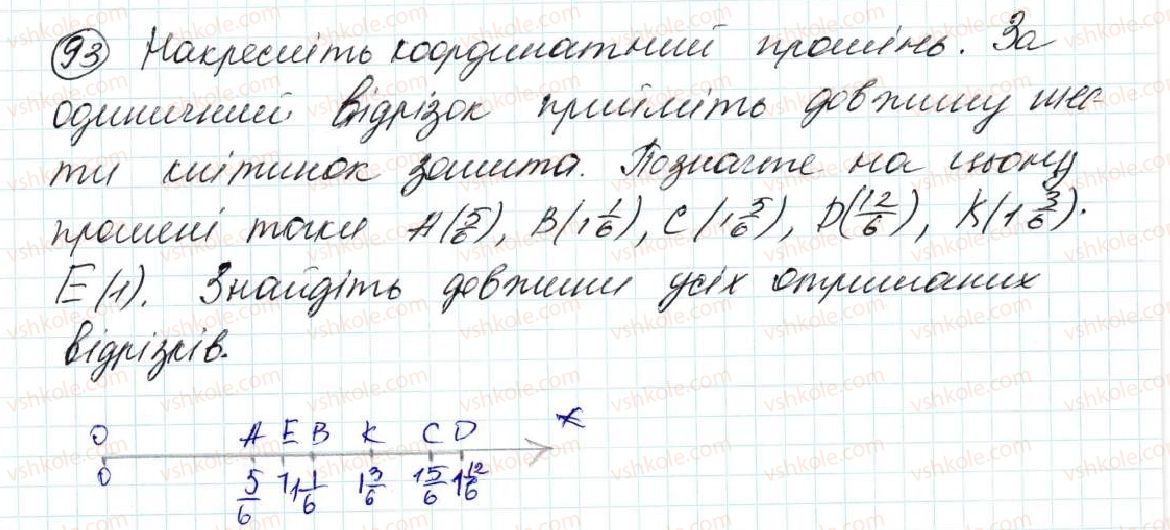 93 Накресліть координатний промінь. За
одиничний відрізок прийміть довжину шес-
ти клітинок зошита. Позначте на цьому
промені точки A(5/6), B(1 1/6), C(1 5/6), D(12/6), K(1 3/6).
E(1). Знайдіть довжини усіх отриманих
відрізків.
O A E B K C D x
0 5/6 1 1 1/6 1 3/6 1 5/6 1 12/6
vshkole.com